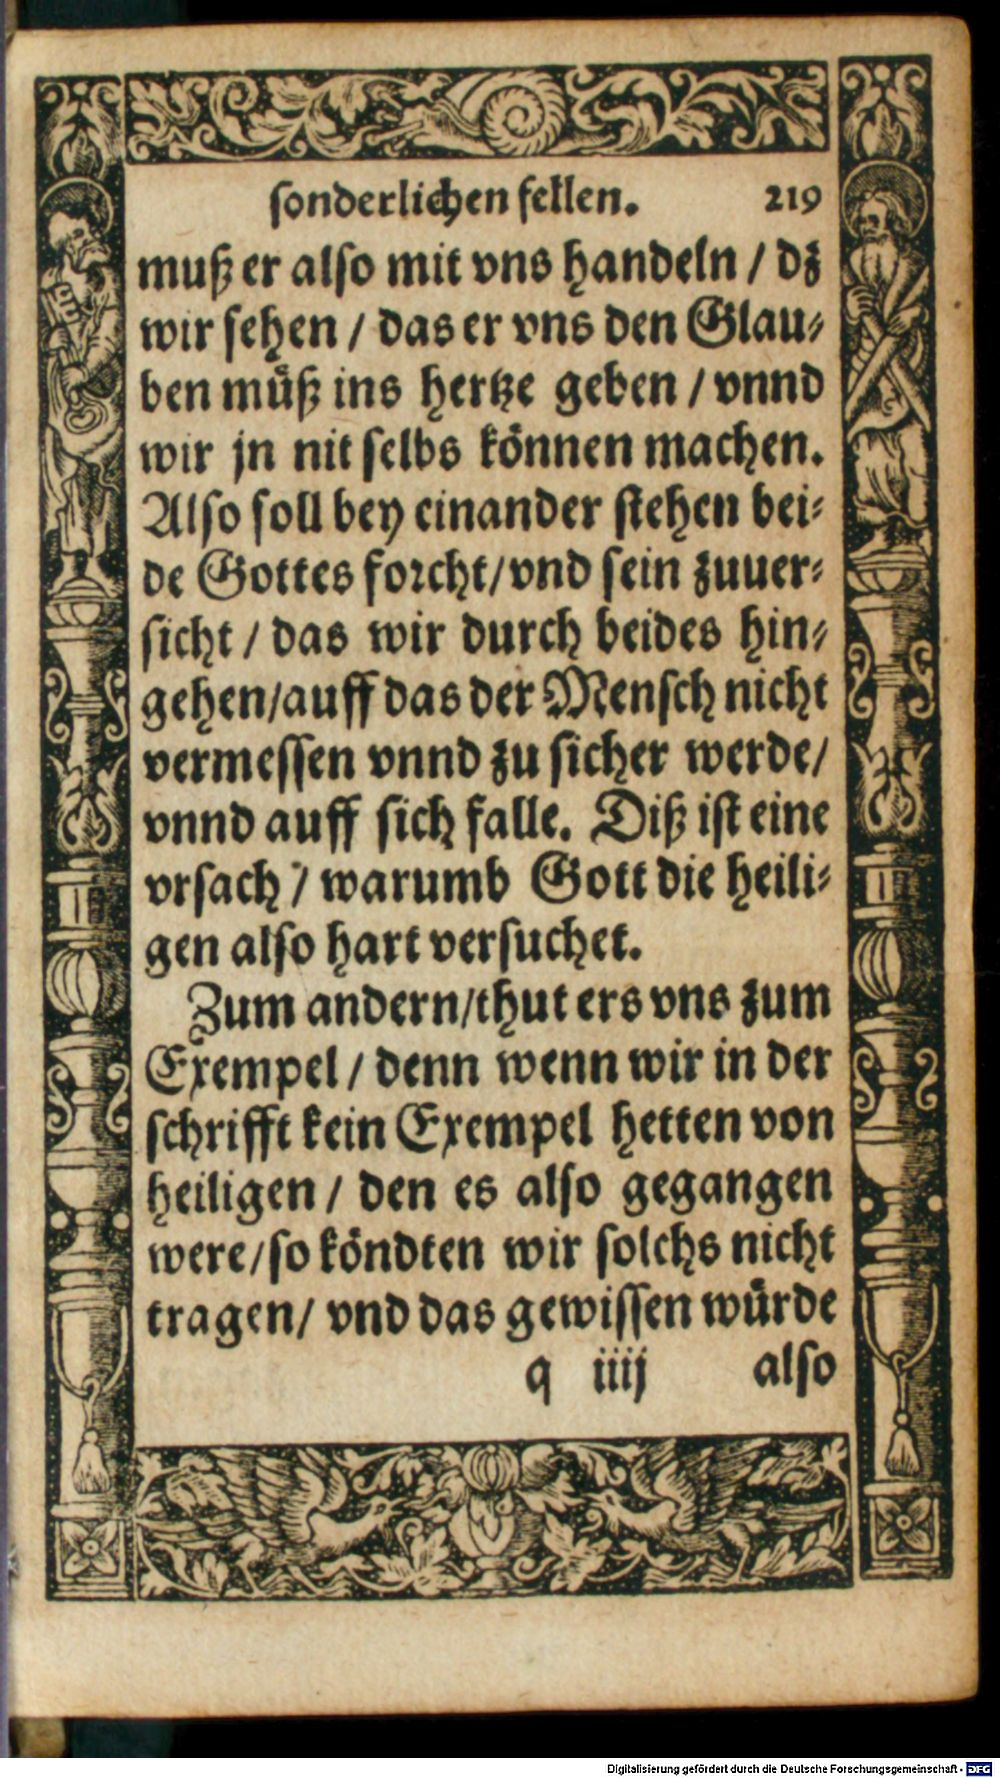 sonderlichen fellen. 219
muß er also mit vns handeln / dz
wir sehen / das er vns den Glau⸗
ben müß ins hertze geben / vnnd
wir jn nit selbs können machen.
Also soll bey einander stehen bei⸗
de Gottes forcht / vnd sein zuuer⸗
sicht / das wir durch beides hin⸗
gehen / auff das der Mensch nicht
vermessen vnnd zu sicher werde /
vnnd auff sich falle. Diß ist eine
vrsach / warumb Gott die heili⸗
gen also hart versuchet.
Zum andern / thut ers vns zum
Exempel / denn wenn wir in der
schrifft kein Exempel hetten von
heiligen / den es also gegangen
were / so köndten wir solchs nicht
tragen / vnd das gewissen würde
q iiij also
Digitalisierung gefördert durch die Deutsche Forschungsgemeinschaft - DFG